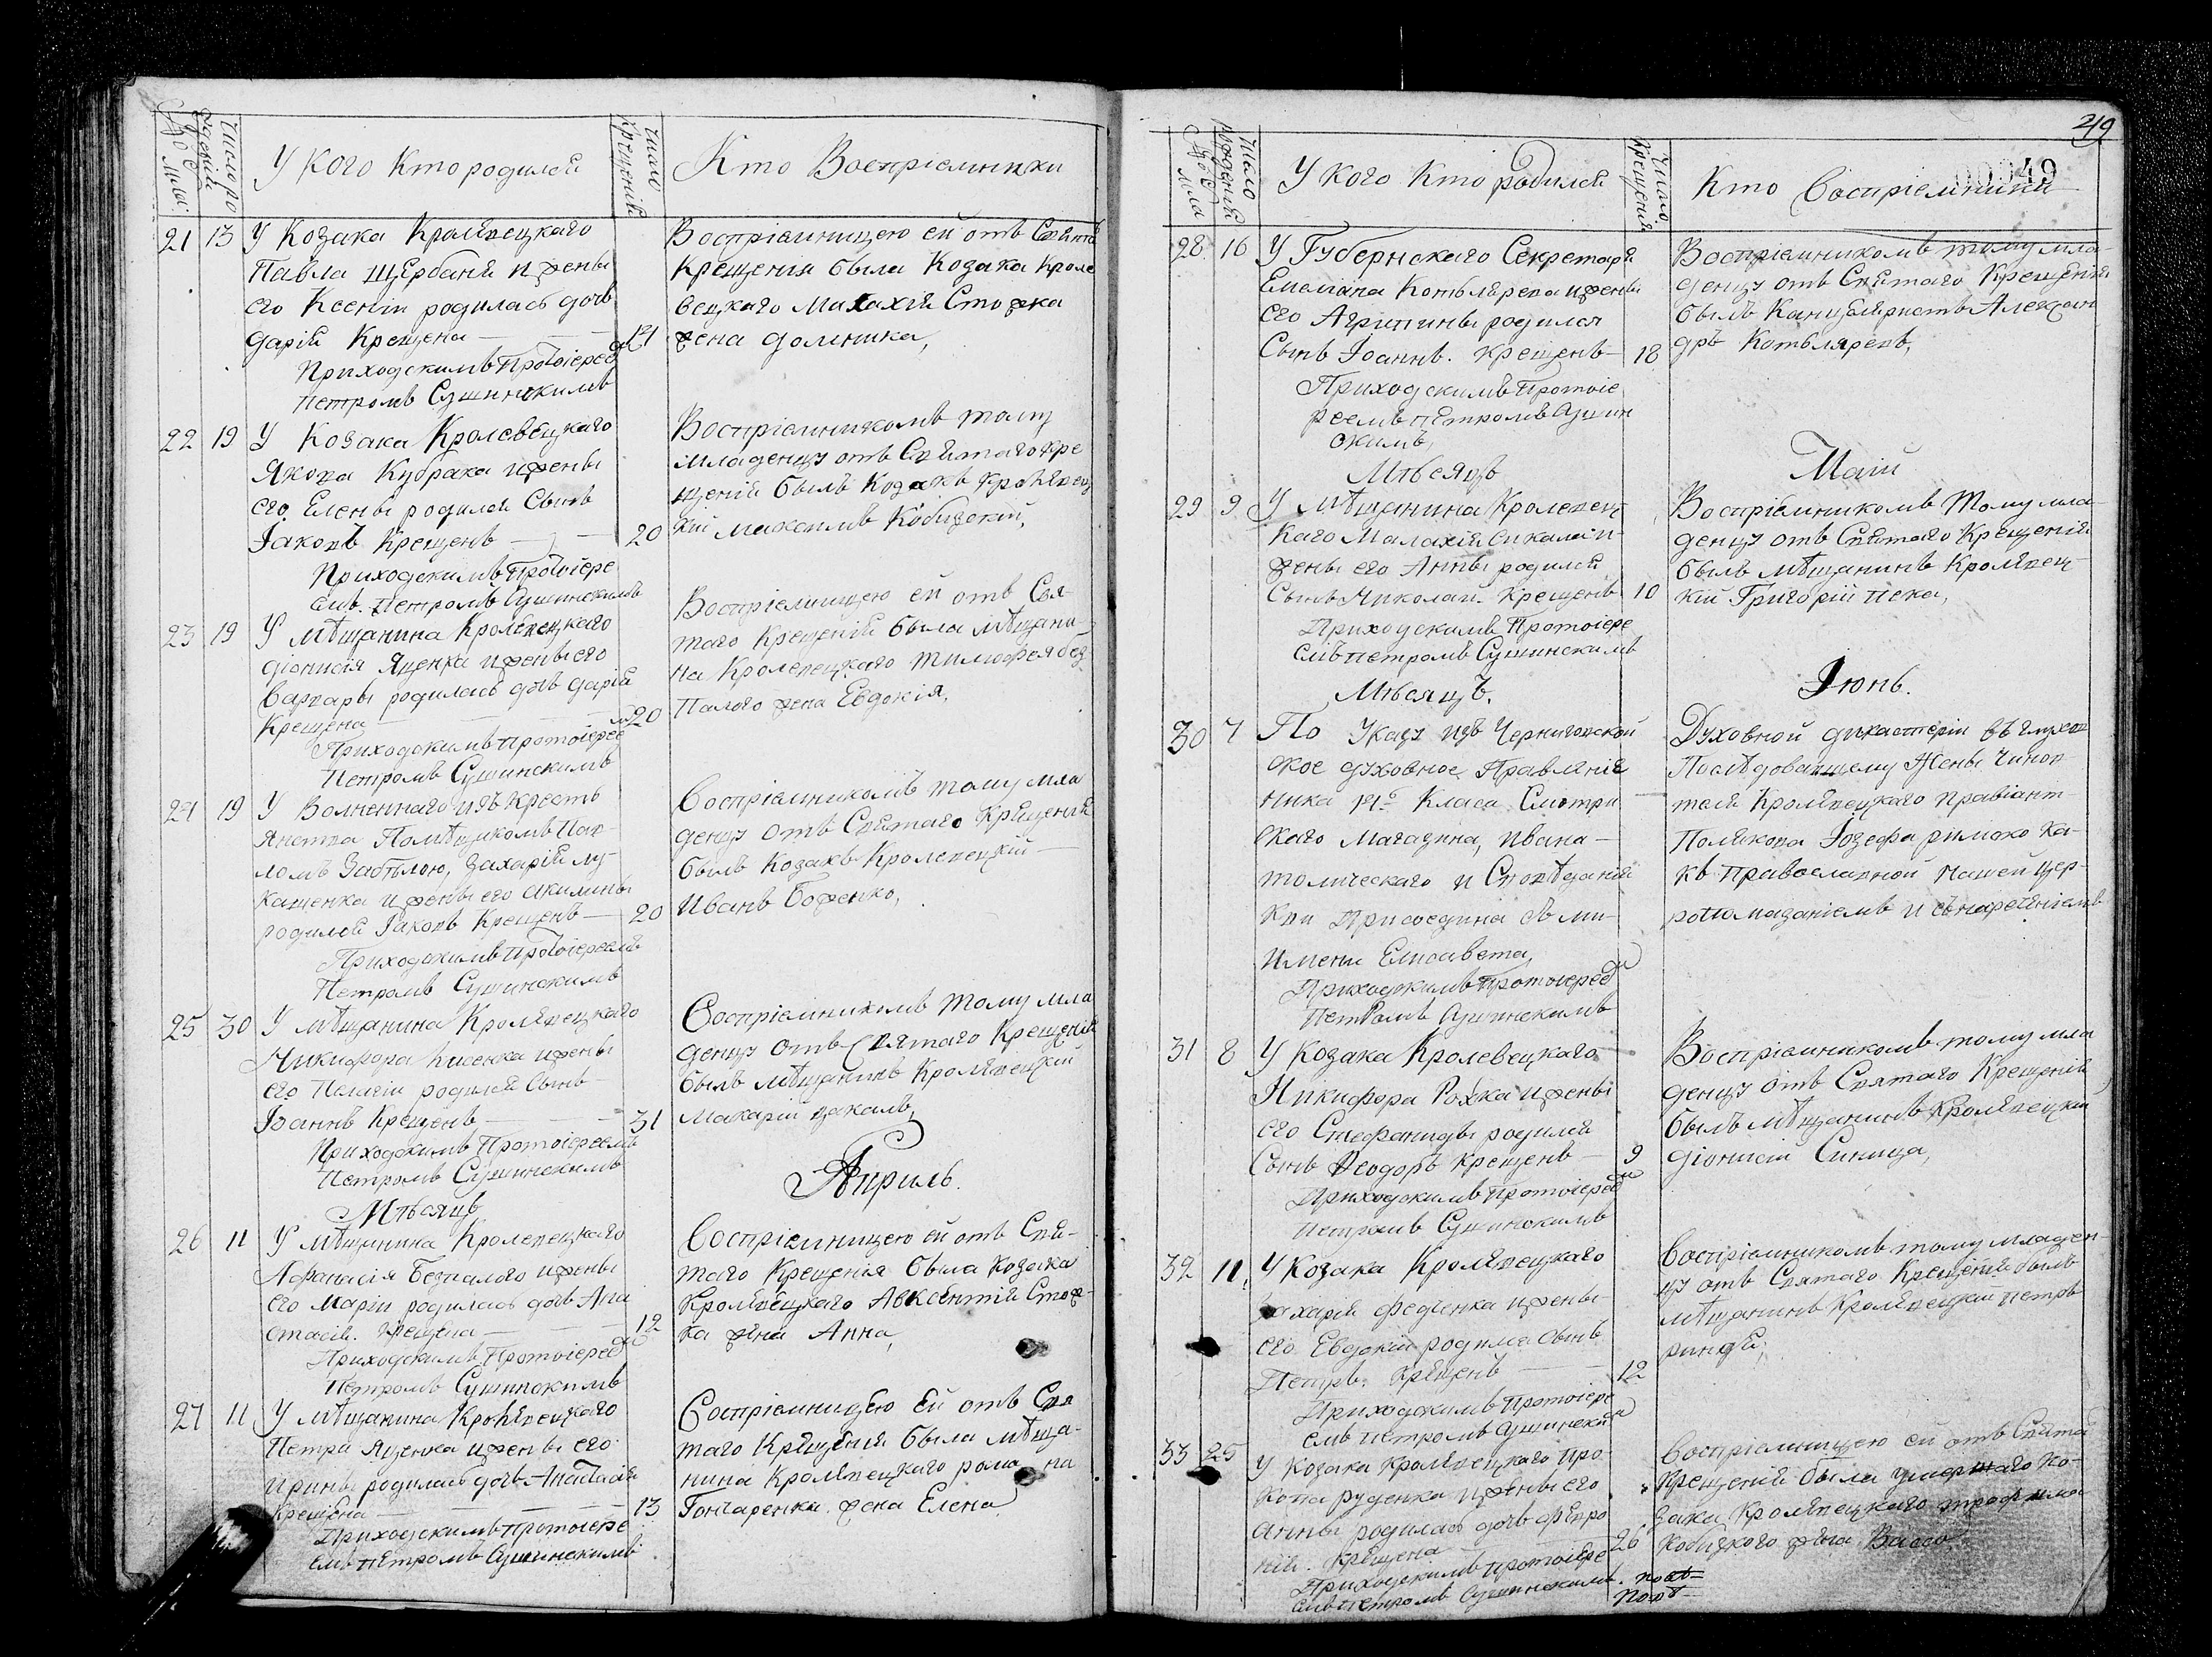 Число родженій
Мѣсяцъ
У кого Кто родился
Число крещеній
Кто Воспріемники
21 13 У Козака Кролѣвецкаго
Павла Щербаня и жены
его Ксеніи родилась дочь
Дарія Крещена 14
Приходскимъ Протоіереемъ
Петромъ Сушинскимъ
Воспріемницею ей отъ Святаго
Крещенія была Козака Кроле
вецкаго Малахія Стожка
жена Домникія,
22 19 У Козака Кролевецкаго
Якова Кубрака и жены
его Елены родился Сынъ
Іаковъ Крещенъ 20
Приходскимъ Протоіере
емъ Петромъ Сушинскимъ
Воспріемникомъ тому
младенцу отъ Святаго кре
щенія былъ Козакъ Кролѣвец
кій Максимъ Кобизскій,
23 19 У Мѣщанина Кролѣвецкаго
Діонисія Яценка и жены его
Варвары родилась дочь Дарія
Крещена 20
Приходскимъ протоіереем
Петромъ Сушинскимъ
Воспріемницею ей отъ Свя-
таго Крещенія была мѣщани-
на Кролевецкаго Тимофея без
палого жена Евдокія,
24 19 У Волненнаго изъ крестья
янства Помѣщикомъ Пав-
ломъ Забѣлою, Захарія лу-
кашенка и жены его Акилины
родился Іаковъ Крещенъ 20
Приходскимъ протоіереемъ
Петромъ Сушинскимъ
Воспріемникомъ тому мла
денцу отъ Святаго Крещенія
былъ Козакъ Кролевецкій
Иванъ Боженко,
25 30 У мѣщанина Кролѣвецкаго
Никифора лисенка и жены
его Пелагіи родился Сынъ
Іоаннъ Крещенъ 31
Приходскимъ Протоіереемъ
Петромъ Сушинскимъ
Воспріемникомъ тому мла
денцу отъ Святаго Крещенія
былъ мѣщанинъ Кролѣвецкій
Макарій
Мѣсяцъ Априль.
26 11 У мѣщанина Кролевецкаго
Афанасія Безпалого и жены
его Маріи родилась дочь Ана
стасія. Крещена 12
Приходскимъ Протоіерее
Петромъ Сушинскимъ
Воспріемницею ей отъ Свя-
таго Крещенія была Козака
Кролѣвецкаго Авксентія Стож-
ка жена Анна,
27 11 У мѣщанина Кролѣвецкаго
Петра Яценка и жены его
Ирины родилась дочь Анастасія
Крещена 13
Приходскимъ протоіере
емъ Петромъ Сушинскимъ
Воспріемницею ей отъ Свя
таго Крещенія была мѣща-
нина Кролѣвецкаго романа
Гончаренка жена Елена
249
00949
Число рожденій
Мѣсяца
У Кого Кто родился
Число крещенія
Кто Воспріемники
28 16 У Губернскаго Секретаря
Емеліана Котьлярева и жены
его Агрипины родился
Сынъ Іоаннъ. Крещенъ 18
Приходскимъ Протоіе
реемъ Петромъ Сушин
скимъ,
Воспріемникомъ тому мла-
денцу отъ Святаго Крещенія
былъ Канцеляристъ Александ
дръ Котьляревъ,
Мѣсяцъ Маій
29 9 У Мѣщанина Кролевец-
каго Малахія и
жены его Анны родился
Сынъ Николай. Крещенъ 10
Приходскимъ Протоіере
емъ Петромъ Сушинскимъ
Воспріемникомъ Тому мла-
денцу отъ Святаго Крещенія
былъ мѣщанинъ Кролѣвец-
кій Григорій Пека,
Мѣсяцъ. Іюнь.
30 7 По Указу изъ Черниговской Духовной дикастеріи въ Глухов
ское духовное Правленіе Послѣдовавшему Жены Чинов-
ника 14го Класа Смотри теля Кролѣвецкаго правіант-
скаго Магазина, Ивана Полякова Іозефа римско ка-
толическаго и Сповѣданія къ православной нашей цер-
кви Присоединена съ ми- ропомазаніемъ и съ нареченіемъ
имени Елисавета,
Приходскимъ Протоіерее
Петромъ Сушинскимъ
31 8 У Козака Кролевецкаго
Никифора Рожка и жены
его Стефаниды родился
Сынъ Ѳеодоръ крещенъ 9
Приходскимъ Протоіерее
Петромъ Сушинскимъ
Воспріемникомъ тому мла
денцу отъ Святаго Крещенія
былъ мѣщанинъ Кролѣвецкій
Діонисій Синица,
32 11 У Козака Кролѣвецкаго
Захарія Федченка и жены
его Евдокіи родился Сынъ
Петръ. Крещенъ 12
Приходскимъ Протоіере
емъ Петромъ Сушински
Воспріемникомъ тому младен-
цу отъ Святаго Крещенія былъ
мѣщанинъ Кролѣвецкій Петръ
33 25 У Козака Кролѣвецкаго Про-
копа руденка и жены его
Анны родилась дочь Февро
нія. Крещена 26
Приходскимъ Протоіере
емъ Петромъ Сушинскимъ.
Воспріемницею ей отъ Святаго
Крещенія была умершаго Ко-
зака Кролѣвецкаго Трофима
Кобизкого жена Васса